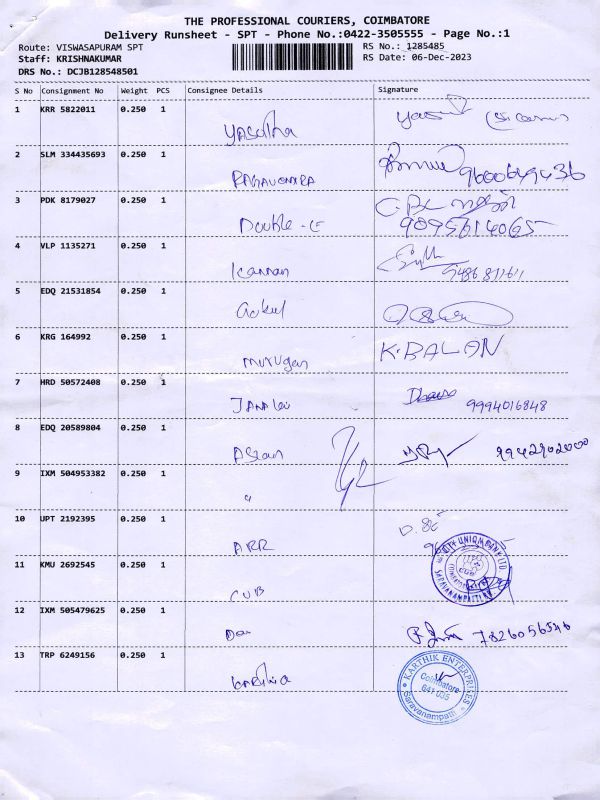 THE PROFESSIONAL COURIERS, COIMBATORE
Delivery Runsheet - SPT - Phone No.:0422-3505555 - Page No.:1
Route: VISWASAPURAM SPT
RS No.: 1285485
Staff: KRISHNAKUMAR
RS Date: 06-Dec-2023
DRS No.: DCJB128548501
S No Consignment No Weight PCS Consignee Details Signature
1 KRR 5822011 0.250 1
2 SLM 334435693 0.250 1
9600649436
3 PDK 8179027 0.250 1
Double-E
4 VLP 1135271 0.250 1
Kannan
5 EDQ 21531854 0.250 1
Gokul
6 KRG 164992 0.250 1
Murugan K.BALAN
7 HRD 50572408 0.250 1
9994016848
8 EDQ 20589804 0.250 1
Asian 9942902000
9 IXM 504953382 0.250 1
"
10 UPT 2192395 0.250 1
ARR
11 KMU 2692545 0.250 1
CUB
CITY UNION BANK LTD
SARAVANAMPATTI
12 IXM 505479625 0.250 1
7826056546
13 TRP 6249156 0.250 1
KARTHIK ENTERPRISES
Coimbatore
641 035
Saravanampatti